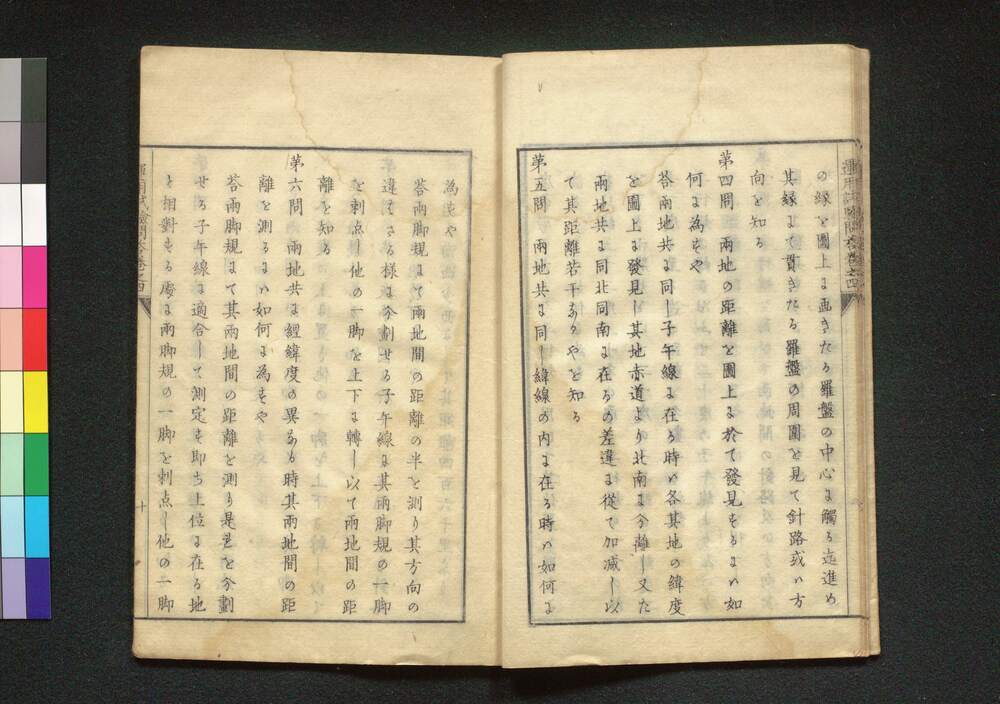 の縁を圖上に画きたる羅盤の中心に觸る迄進め
其縁まて貫きたる羅盤の周圍を見て針路或ハ方
向を知る
第四問 兩地の距離を圖上に於て發見をるにハ如
何に為をや
荅兩地共に同し子午線に在る時ハ各其地の緯度
を圖上に發見し其地赤道より北南に分離し又た
兩地共に同北同南に在るの差違に從て加減し以
て其距離若干あるやを知る
第五問 兩地共に同し緯線の内に在る時ハ如何に
為をや
荅兩脚規にて兩地間の距離の半を測り其方向の
違はさる様に分劃せる子午線に其兩脚規の一脚
を刺点し他の一脚を上下に轉し以て兩地間の距
離を知る
第六問 兩地共に經緯度の異ある時其兩地間の距
離を測るにハ如何に為をや
荅兩脚規にて其兩地間の距離を測り是を分劃
せる子午線に適合して測定を即ち上位に在る地
と相對をる處に兩脚規の一脚を刺点し他の一脚
運用試驗問荅卷之四
十